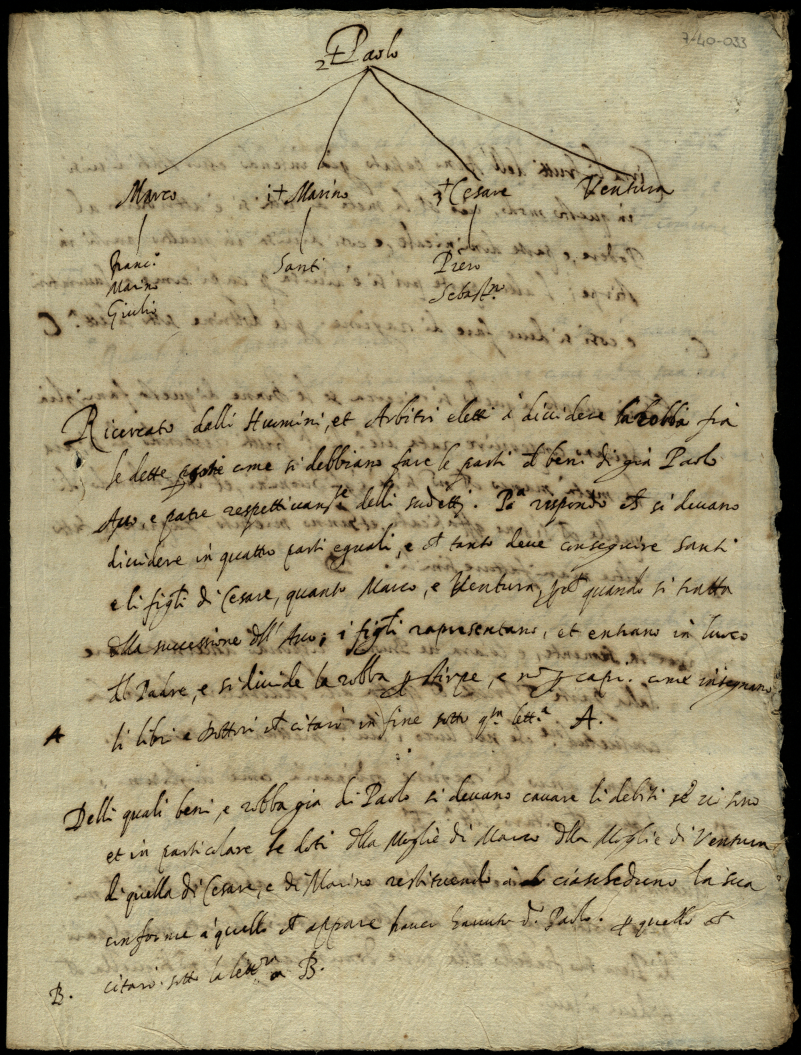 7-40-033
2 + Paolo
Marco 1+ Marino 3+ Cesare Ventura
Franc.º Santi Piero
Marino Sebast.no
Giulio
Ricercato dalli Huomini, et Arbitri eletti à dividere la robba frà
le dette parti come si debbiano fare le parti d beni di già Paolo
Avo, e patre respettivam.te delli sudetti. P.a rispondo ch si devano
dividere in quattro parti eguali, e ch tanto deve conseguire Santi
e li figli di Cesare, quanto Marco, e Ventura, quando si tratta
della successione dell' Avo, i figli rapresentano, et entrano in luoco
del Padre, e si divide la robba p stirpe, e nõ p capi. come insegnano
A li libri e Dottori ch citarò in fine sotto q.ta lett.a A.
Delli quali beni, e robba già di Paolo si devano cavare li debiti se vi sono
et in particolare le doti della Moglie di Marco della Moglie di Ventura
di quella di Cesare, e di Marino restituendo à ciascheduno la sua
conforme à quello ch appare haver havuto d. Paolo. p quello ch
B. citarò sotto la lettera B.